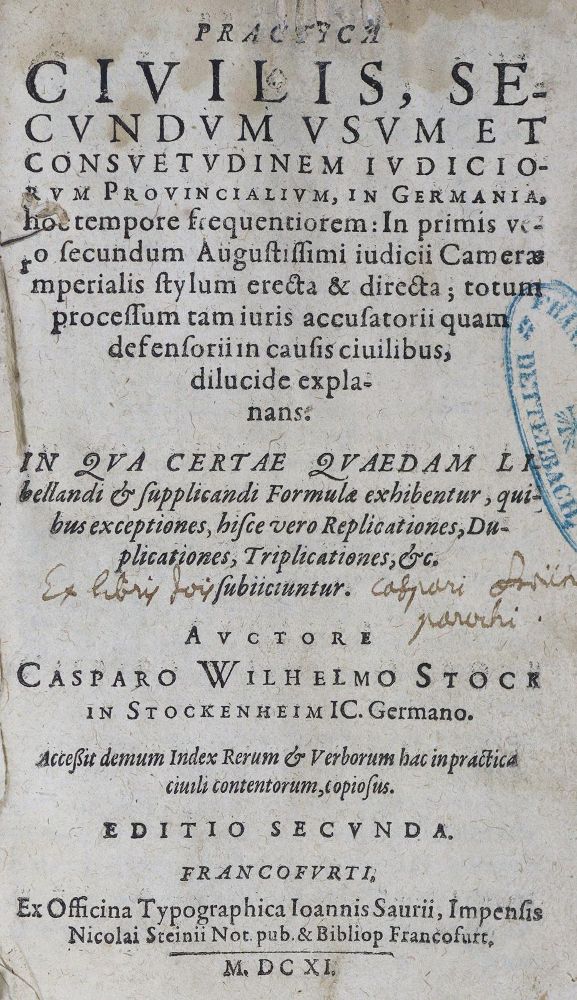 PRACTICA
CIVILIS, SE-
CVNDVM VSVM ET
CONSVETVDINEM IVDICIO-
RVM PROVINCIALIVM, IN GERMANIA,
hoc tempore frequentiorem: In primis ve-
ro secundum Augustissimi iudicii Cameræ
mperialis stylum erecta & directa; totum
processum tam iuris accusatorii quam
defensorii in causis ciuilibus,
dilucide expla-
nans:
IN QVA CERTAE QVAEDAM LI-
bellandi & supplicandi Formulæ exhibentur, qui-
bus exceptiones, hisce vero Replicationes, Du-
plicationes, Triplicationes, &c.
subiiciuntur.
Ex libris Jois Caspari
parochi
AVCTORE
CASPARO WILHELMO STOCK
IN STOCKENHEIM IC. Germano.
Accessit demum Index Rerum & Verborum hac in practica
ciuili contentorum, copiosus.
EDITIO SECVNDA.
FRANCOFVRTI,
Ex Officina Typographica Ioannis Saurii, Impensis
Nicolai Steinii Not. pub. & Bibliop Francofurt.
M. DC XI.
DETTELBACH